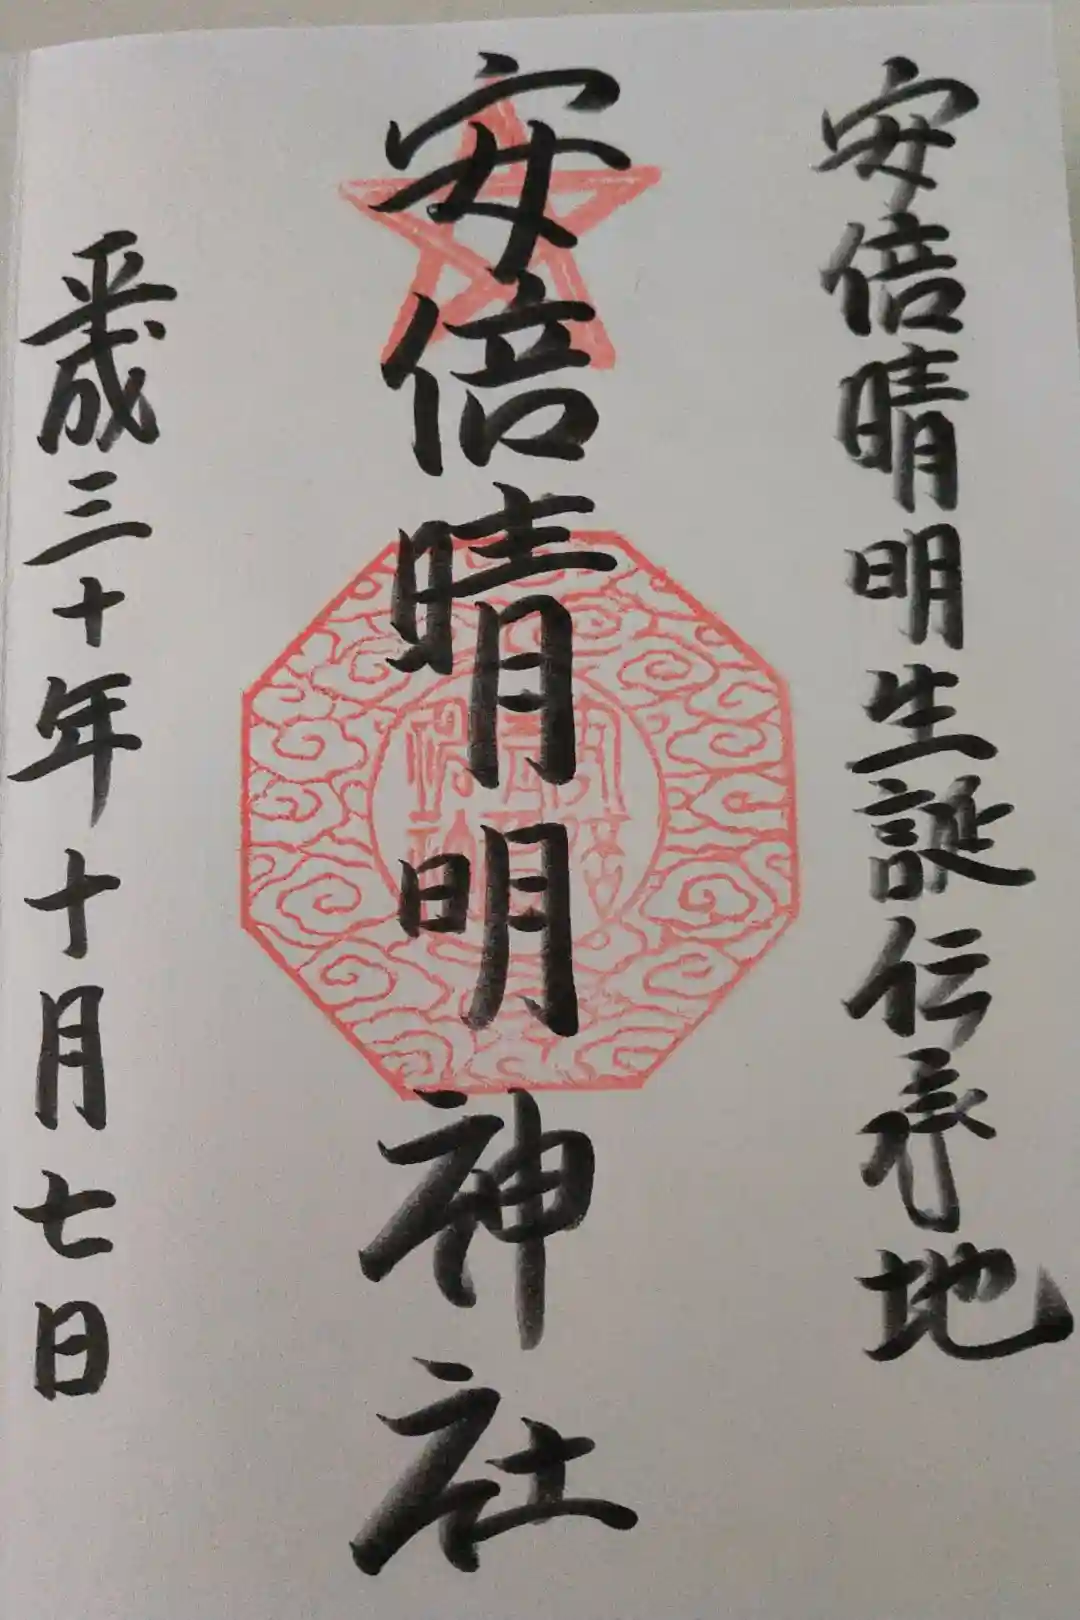 安倍晴明生誕伝承地
安倍晴明神社
平成三十年十月七日